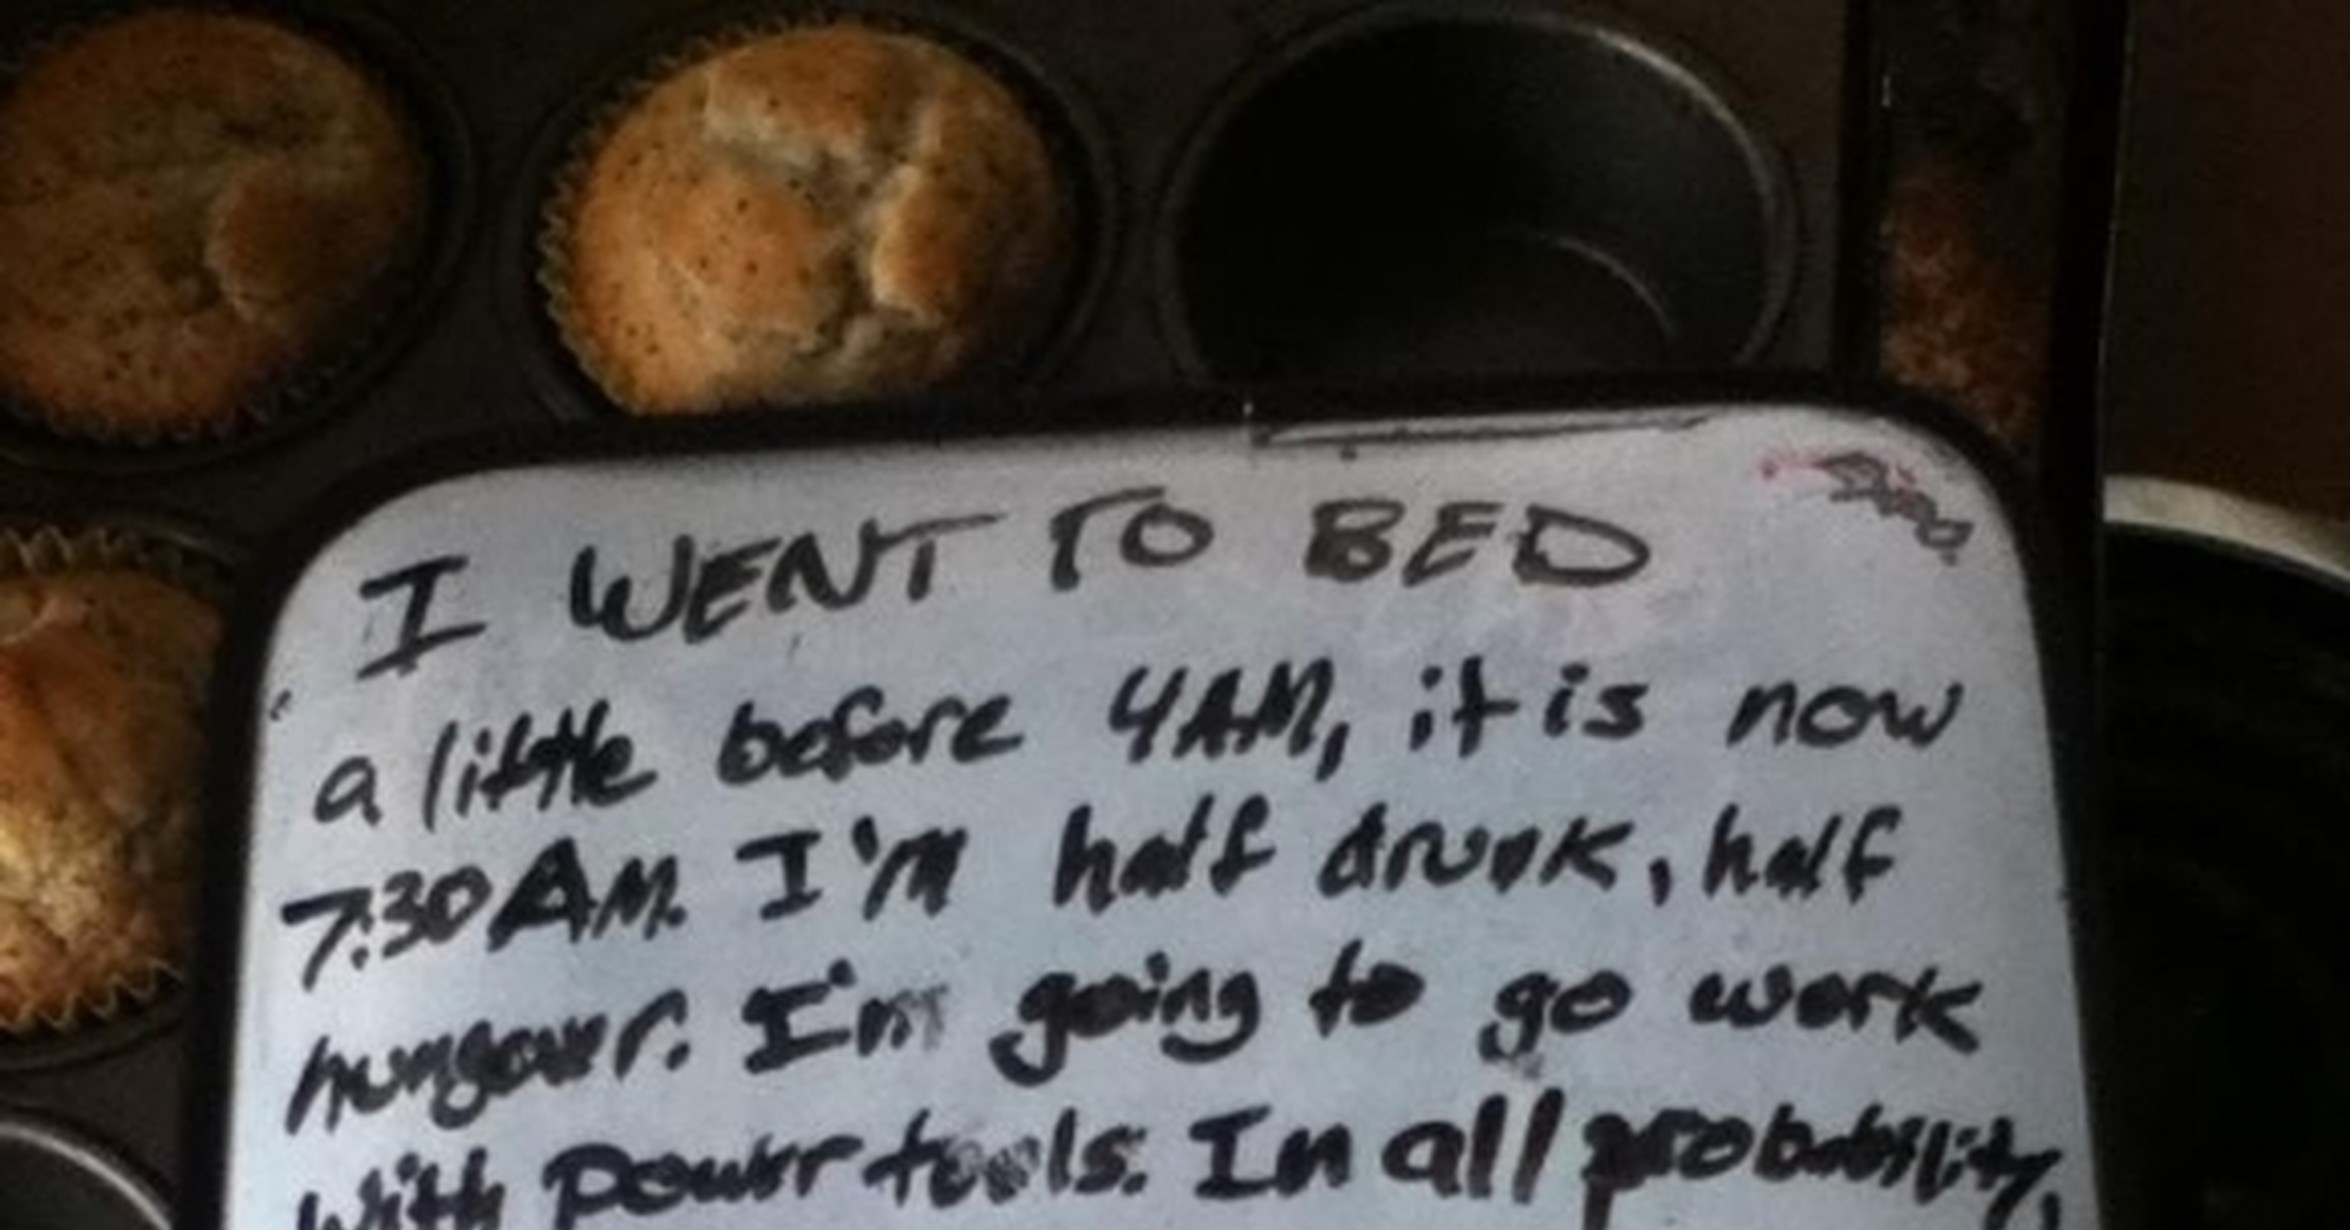 I WENT TO BED
a little before 4AM, it is now
7:30AM. I'm half drunk, half
hungover. I'm going to go work
with power tools. In all probability,